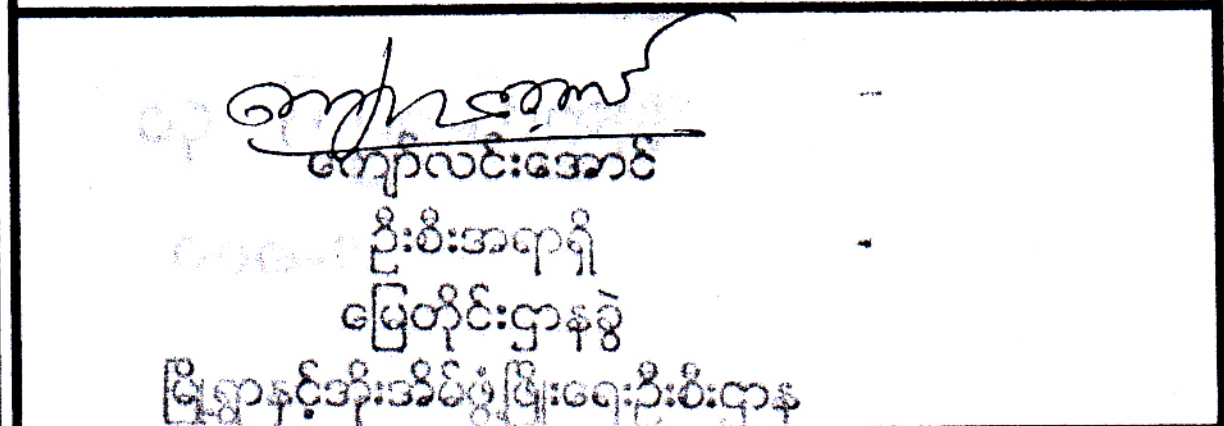 ကျော်လင်းအောင်
ဦးစီးအရာရှိ
မြေတိုင်းဌာနခွဲ
မြို့ရွာနှင့်အိုးအိမ်ဖွံ့ဖြိုးရေးဦးစီးဌာန